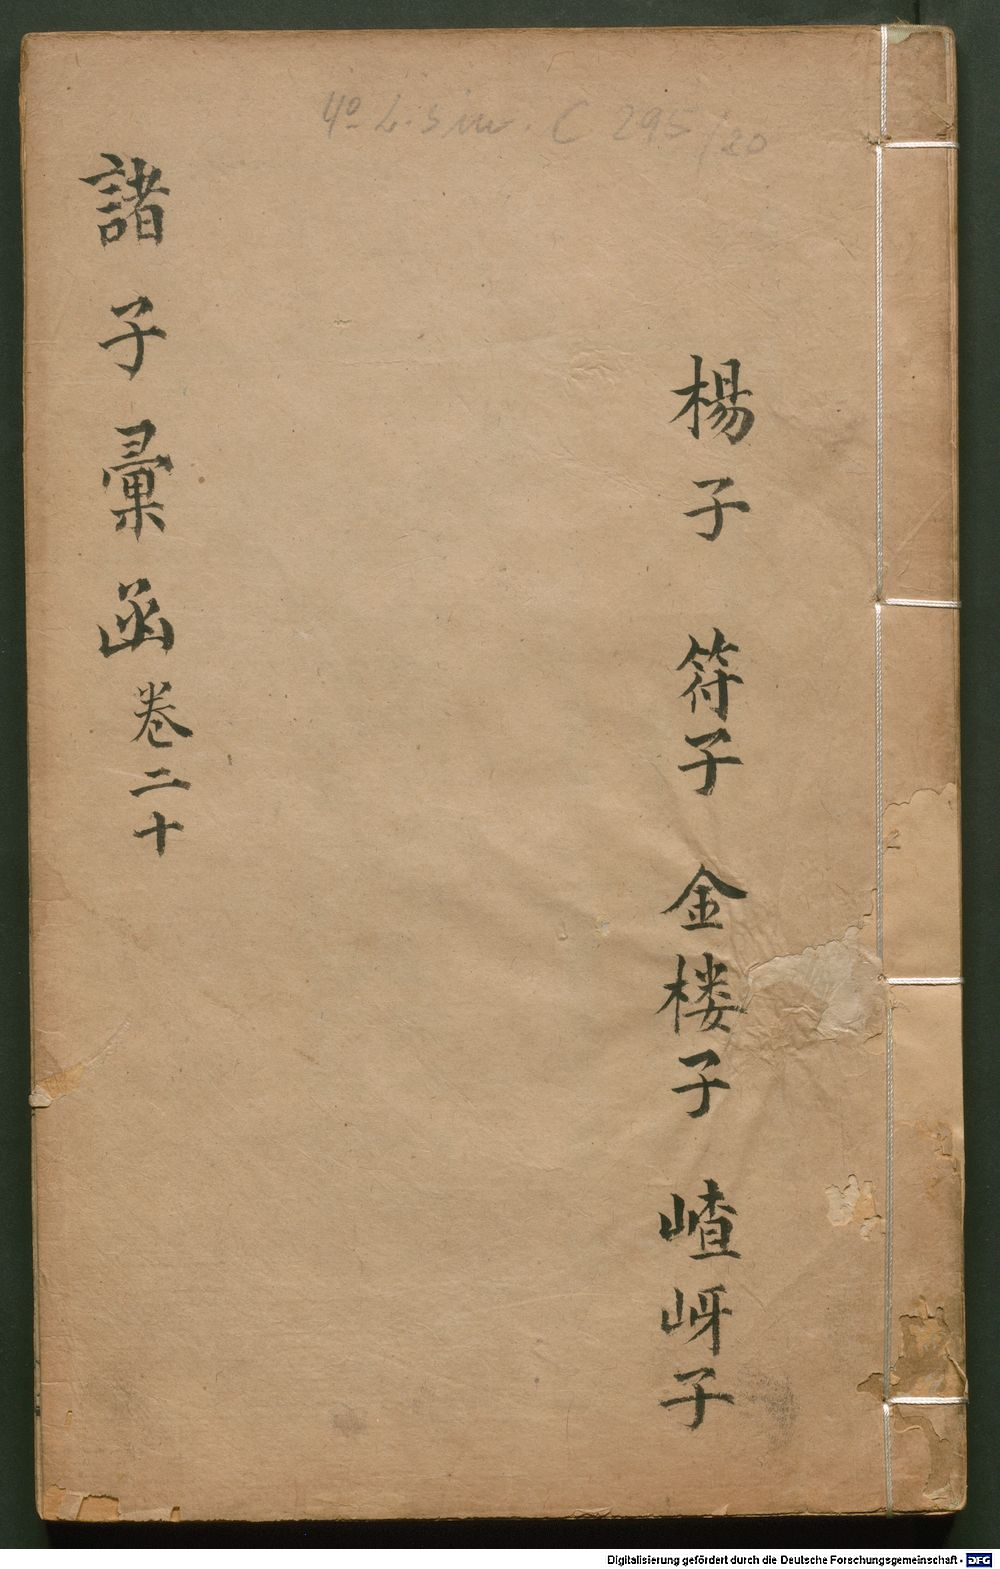 4º L. sin. C 295/20
楊子 符子 金楼子 嵖岈子
諸子彙函卷二十
Digitalisierung gefördert durch die Deutsche Forschungsgemeinschaft - DFG